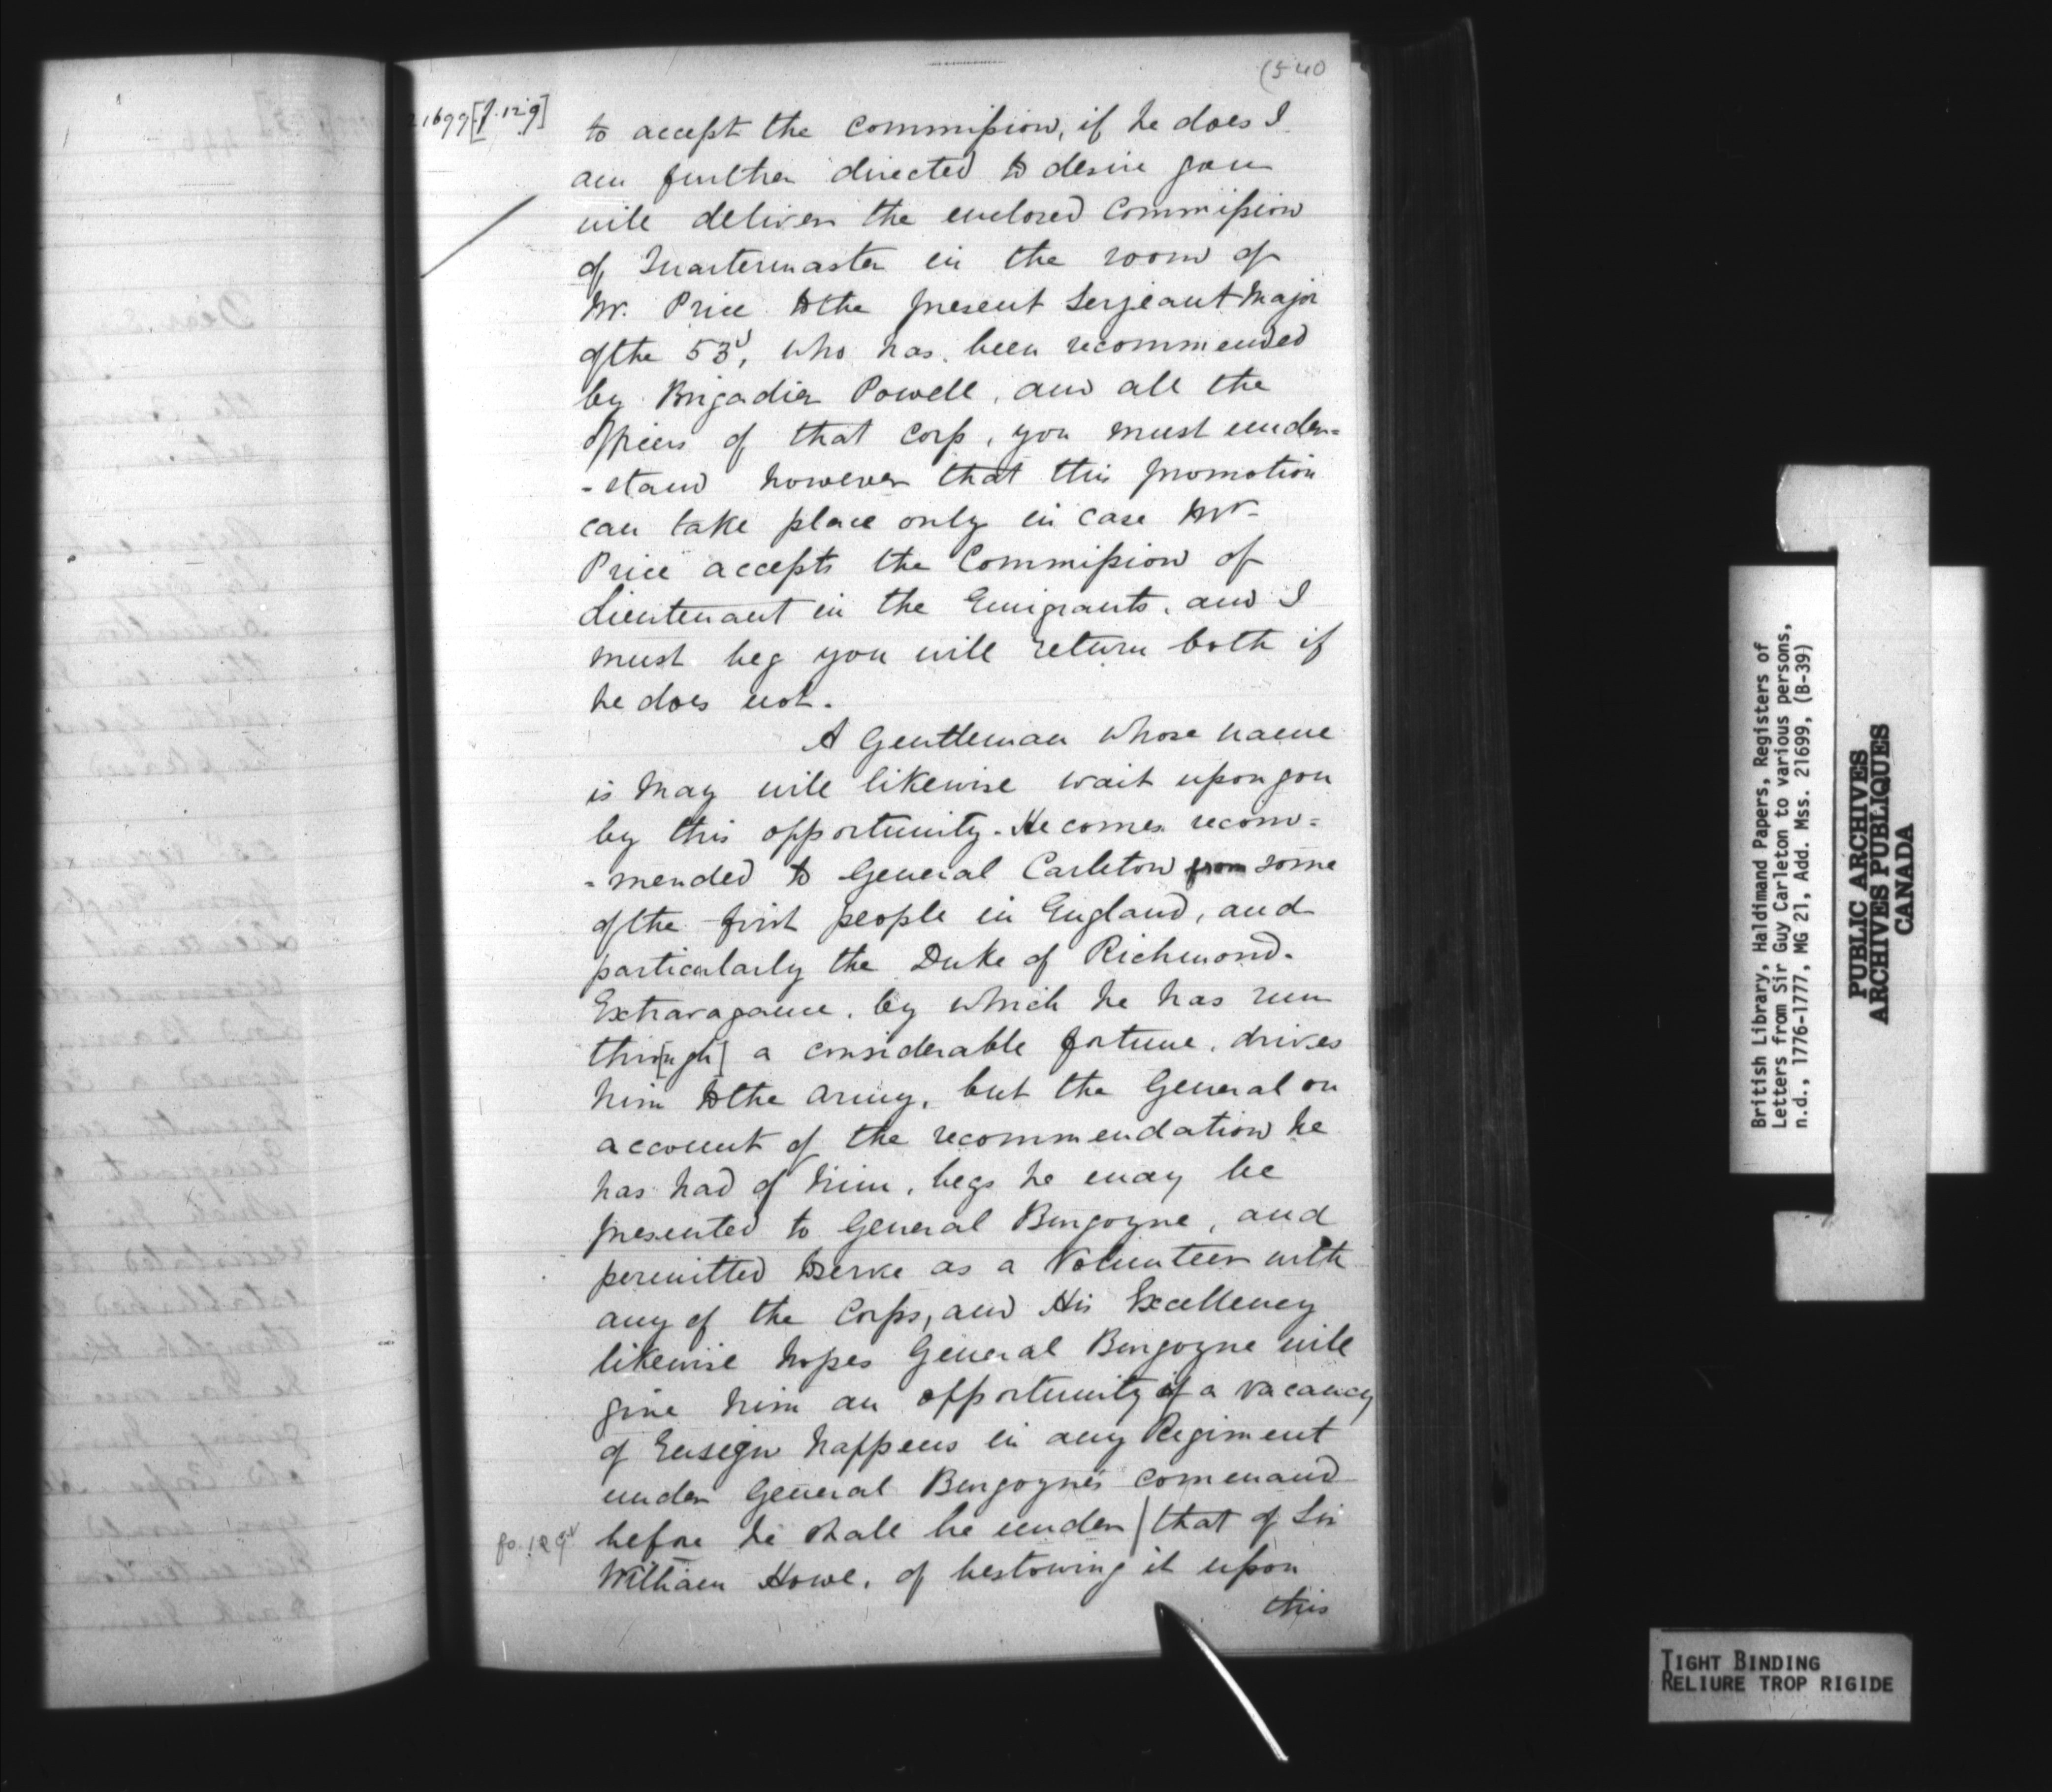 (540
21699 [f.129]
to accept the Commission, if he does I
am further directed to desire you
will deliver the enclosed Commission
of Quartermaster in the room of
Mr. Price to the present Sergeant Major
of the 53d, who has been recommended
by Brigadier Powell, and all the
Officers of that Corp, you must under=
-stand however that this promotion
can take place only in case Mr
Price accepts the Commission of
Lieutenant in the Emigrants, and I
must beg you will return both if
he does not.
A Gentleman whose name
is May will likewise wait upon you
by this opportunity. He comes recom=
=mended to General Carleton from some
of the first people in England, and
particularly the Duke of Richmond.
Extravagance, by which he has run
thro[ugh] a considerable fortune, drives
him to the Army, but the General on
account of the recommendation he
has had of him, begs he may be
presented to General Burgoyne, and
permitted to serve as a Volunteer with
any of the Corps, and His Excellency
likewise hopes General Burgoyne will
give him an opportunity if a vacancy
of Ensign happens in any Regiment
under General Burgoyne's command
fo. 129v before he shall be under | that of Sir
William Howe, of bestowing it upon
this
British Library, Haldimand Papers, Registers of
Letters from Sir Guy Carleton to various persons,
n.d., 1776-1777, MG 21, Add. Mss. 21699, (B-39)
PUBLIC ARCHIVES
ARCHIVES PUBLIQUES
CANADA
TIGHT BINDING
RELIURE TROP RIGIDE